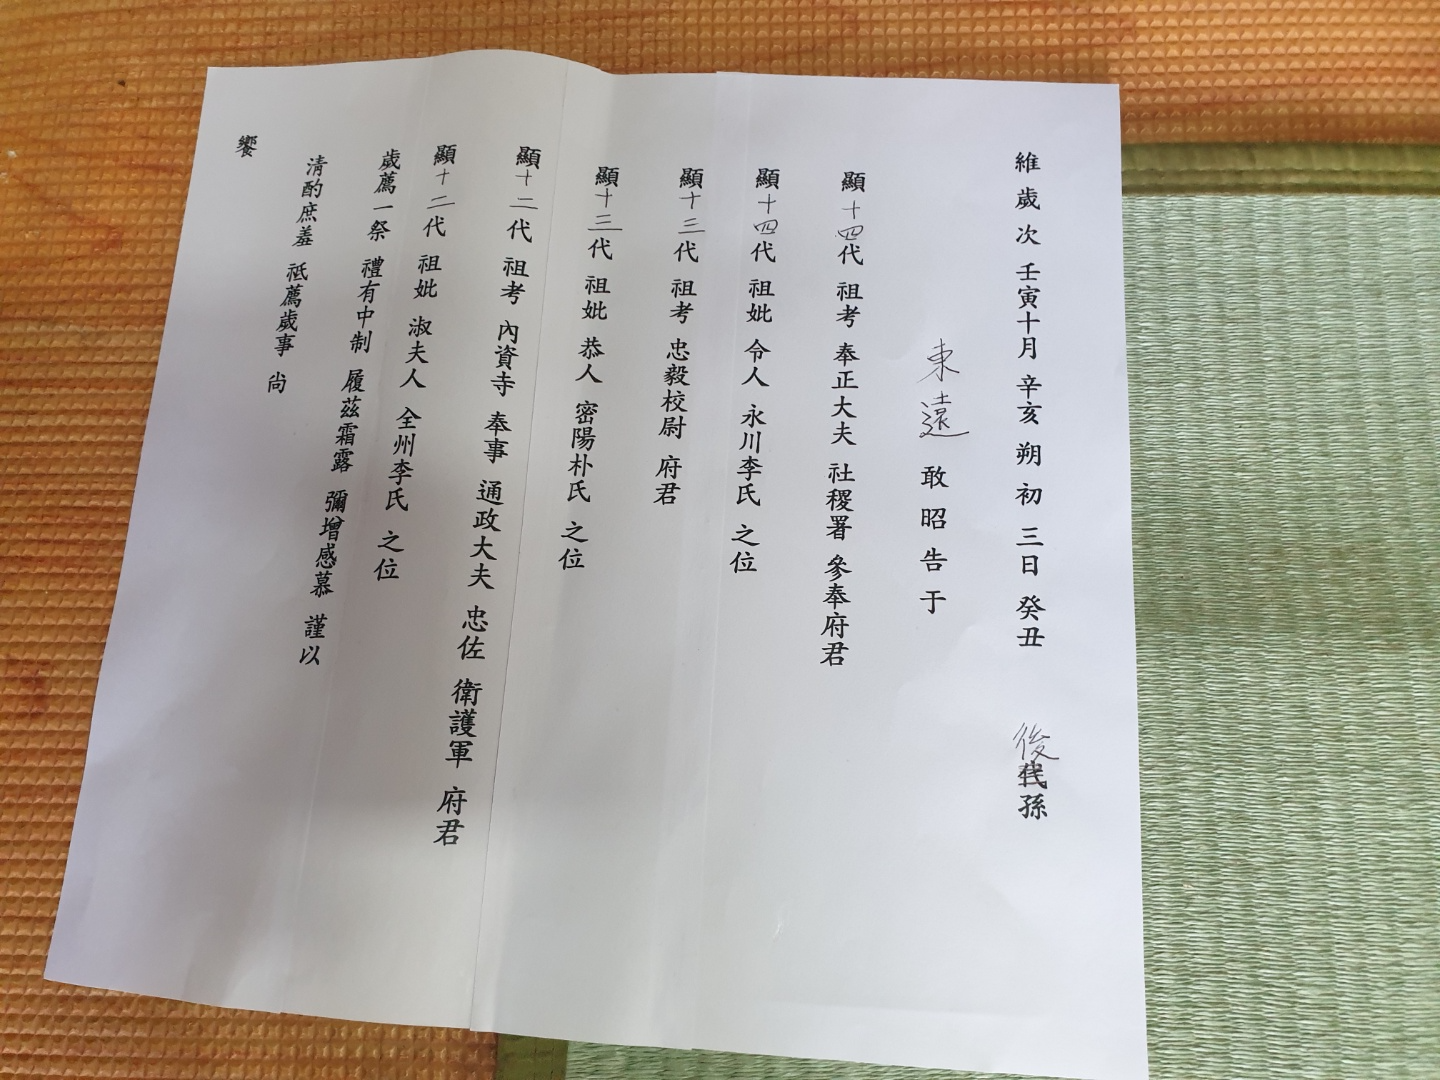 維 歲 次 壬寅十月 辛亥 朔 初 三日 癸丑 後代孫
東遠 敢 昭 告 于
顯十四代 祖考 奉正大夫 社稷署 參奉府君
顯十四代 祖妣 令人 永川李氏 之位
顯十三代 祖考 忠毅校尉 府君
顯十三代 祖妣 恭人 密陽朴氏 之位
顯十二代 祖考 內資寺 奉事 通政大夫 忠佐 衛護軍 府君
顯十二代 祖妣 淑夫人 全州李氏 之位
歲薦一祭 禮有中制 履茲霜露 彌增感慕 謹以
淸酌庶羞 祗薦歲事 尙
饗